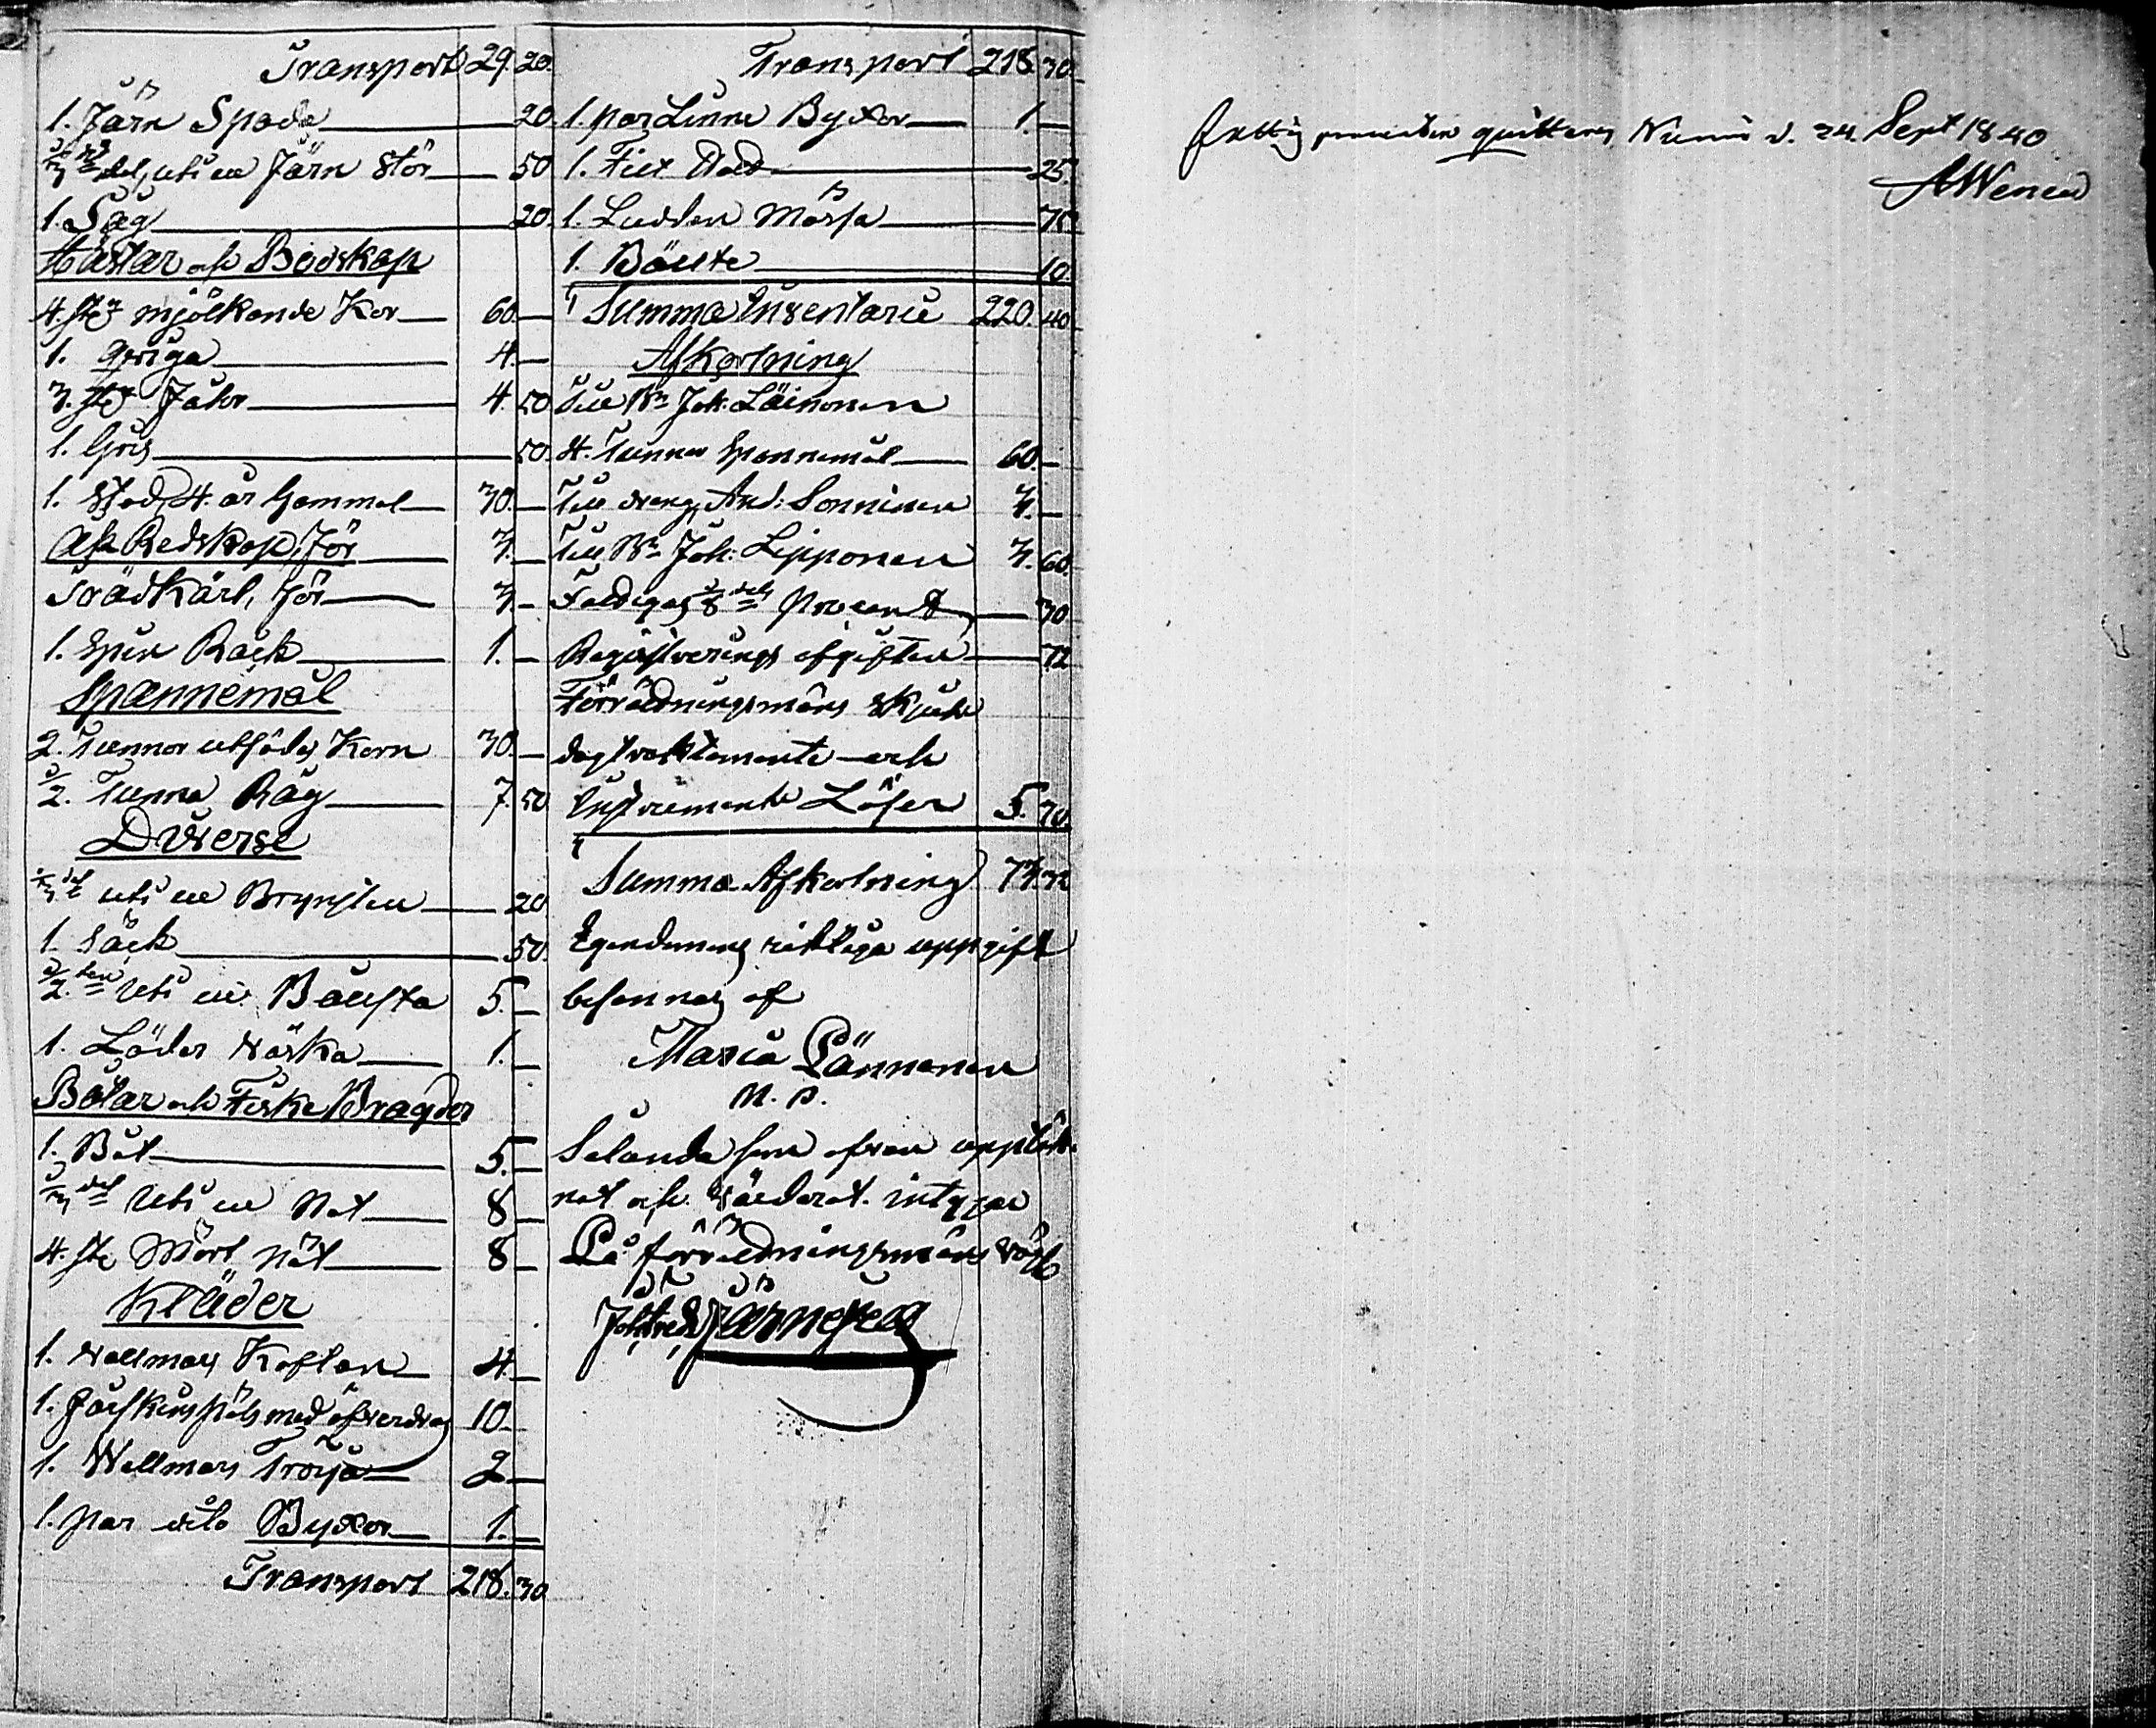 Transport 29. 20.
1. Järn Spada 20.
1/3 del uti en Järn Stör 50
1. Såg 20.
Hästar och Boskap
4. st: mjölkande Kor 60. —
1. qviga 4. —
3. st: Fåhr 4. 50
1. Gris 50.
1. Stod, 4. år Gammal 30. —
Åk Redskap, för 3. —
Trädkärl, för 3. —
1. Spin Råck 1. —
Spannemål
2. Tunnor utsådes Korn 30. —
1/2. Tunna Råg 7. 50
Diverse
1/3 del uti en Brynsten 20
1 Säck 50.
1/2. ten Uti en Baufta 5. —
1. Läder väska 1. —
Båtar och Fiske Bragder
1. Båt 5. —
1/3 del Uti en Not 8 —
4. st Mört Nät 8 —
Kläder
1. vallmars Kaftan 4. —
1. Fårskins päls med öfverdrag 10 —
1. Wallmars Tröja 2 —
1. par dito Byxor 1. —
Transport 218. 30
Transport 218. 30.
1. par Linne Byxor 1. —
1. Filt Hatt 25.
1. Ludden Mössa 75
1. Bälte 10.
Summa Inventarie 220. 40
Afkortning
Till Bn Joh: Läinonen
4. Tunnor Spannemål 60. —
Till dreng And: Sonninen 3. —
Till Bn Joh: Lipponen 3. 60.
Fattigas 1/8 dels Procent 30
Registrerings afgiften 72
Förrättningsmans Skjuts
dagtraktamente och
Instruments Lösen 5. 70.
Summa Afkortning 73. 32
Egendomens riktiga uppgift
besannas af
Maria Pännänen
m. p.
Sålunda som ofvan upptek-
nat och värderat. intygar
På förrättningsmans vägn
Joh: Fredr Järnefelt
fattig procenten qvitteras Numis d. 24. Sept 1840